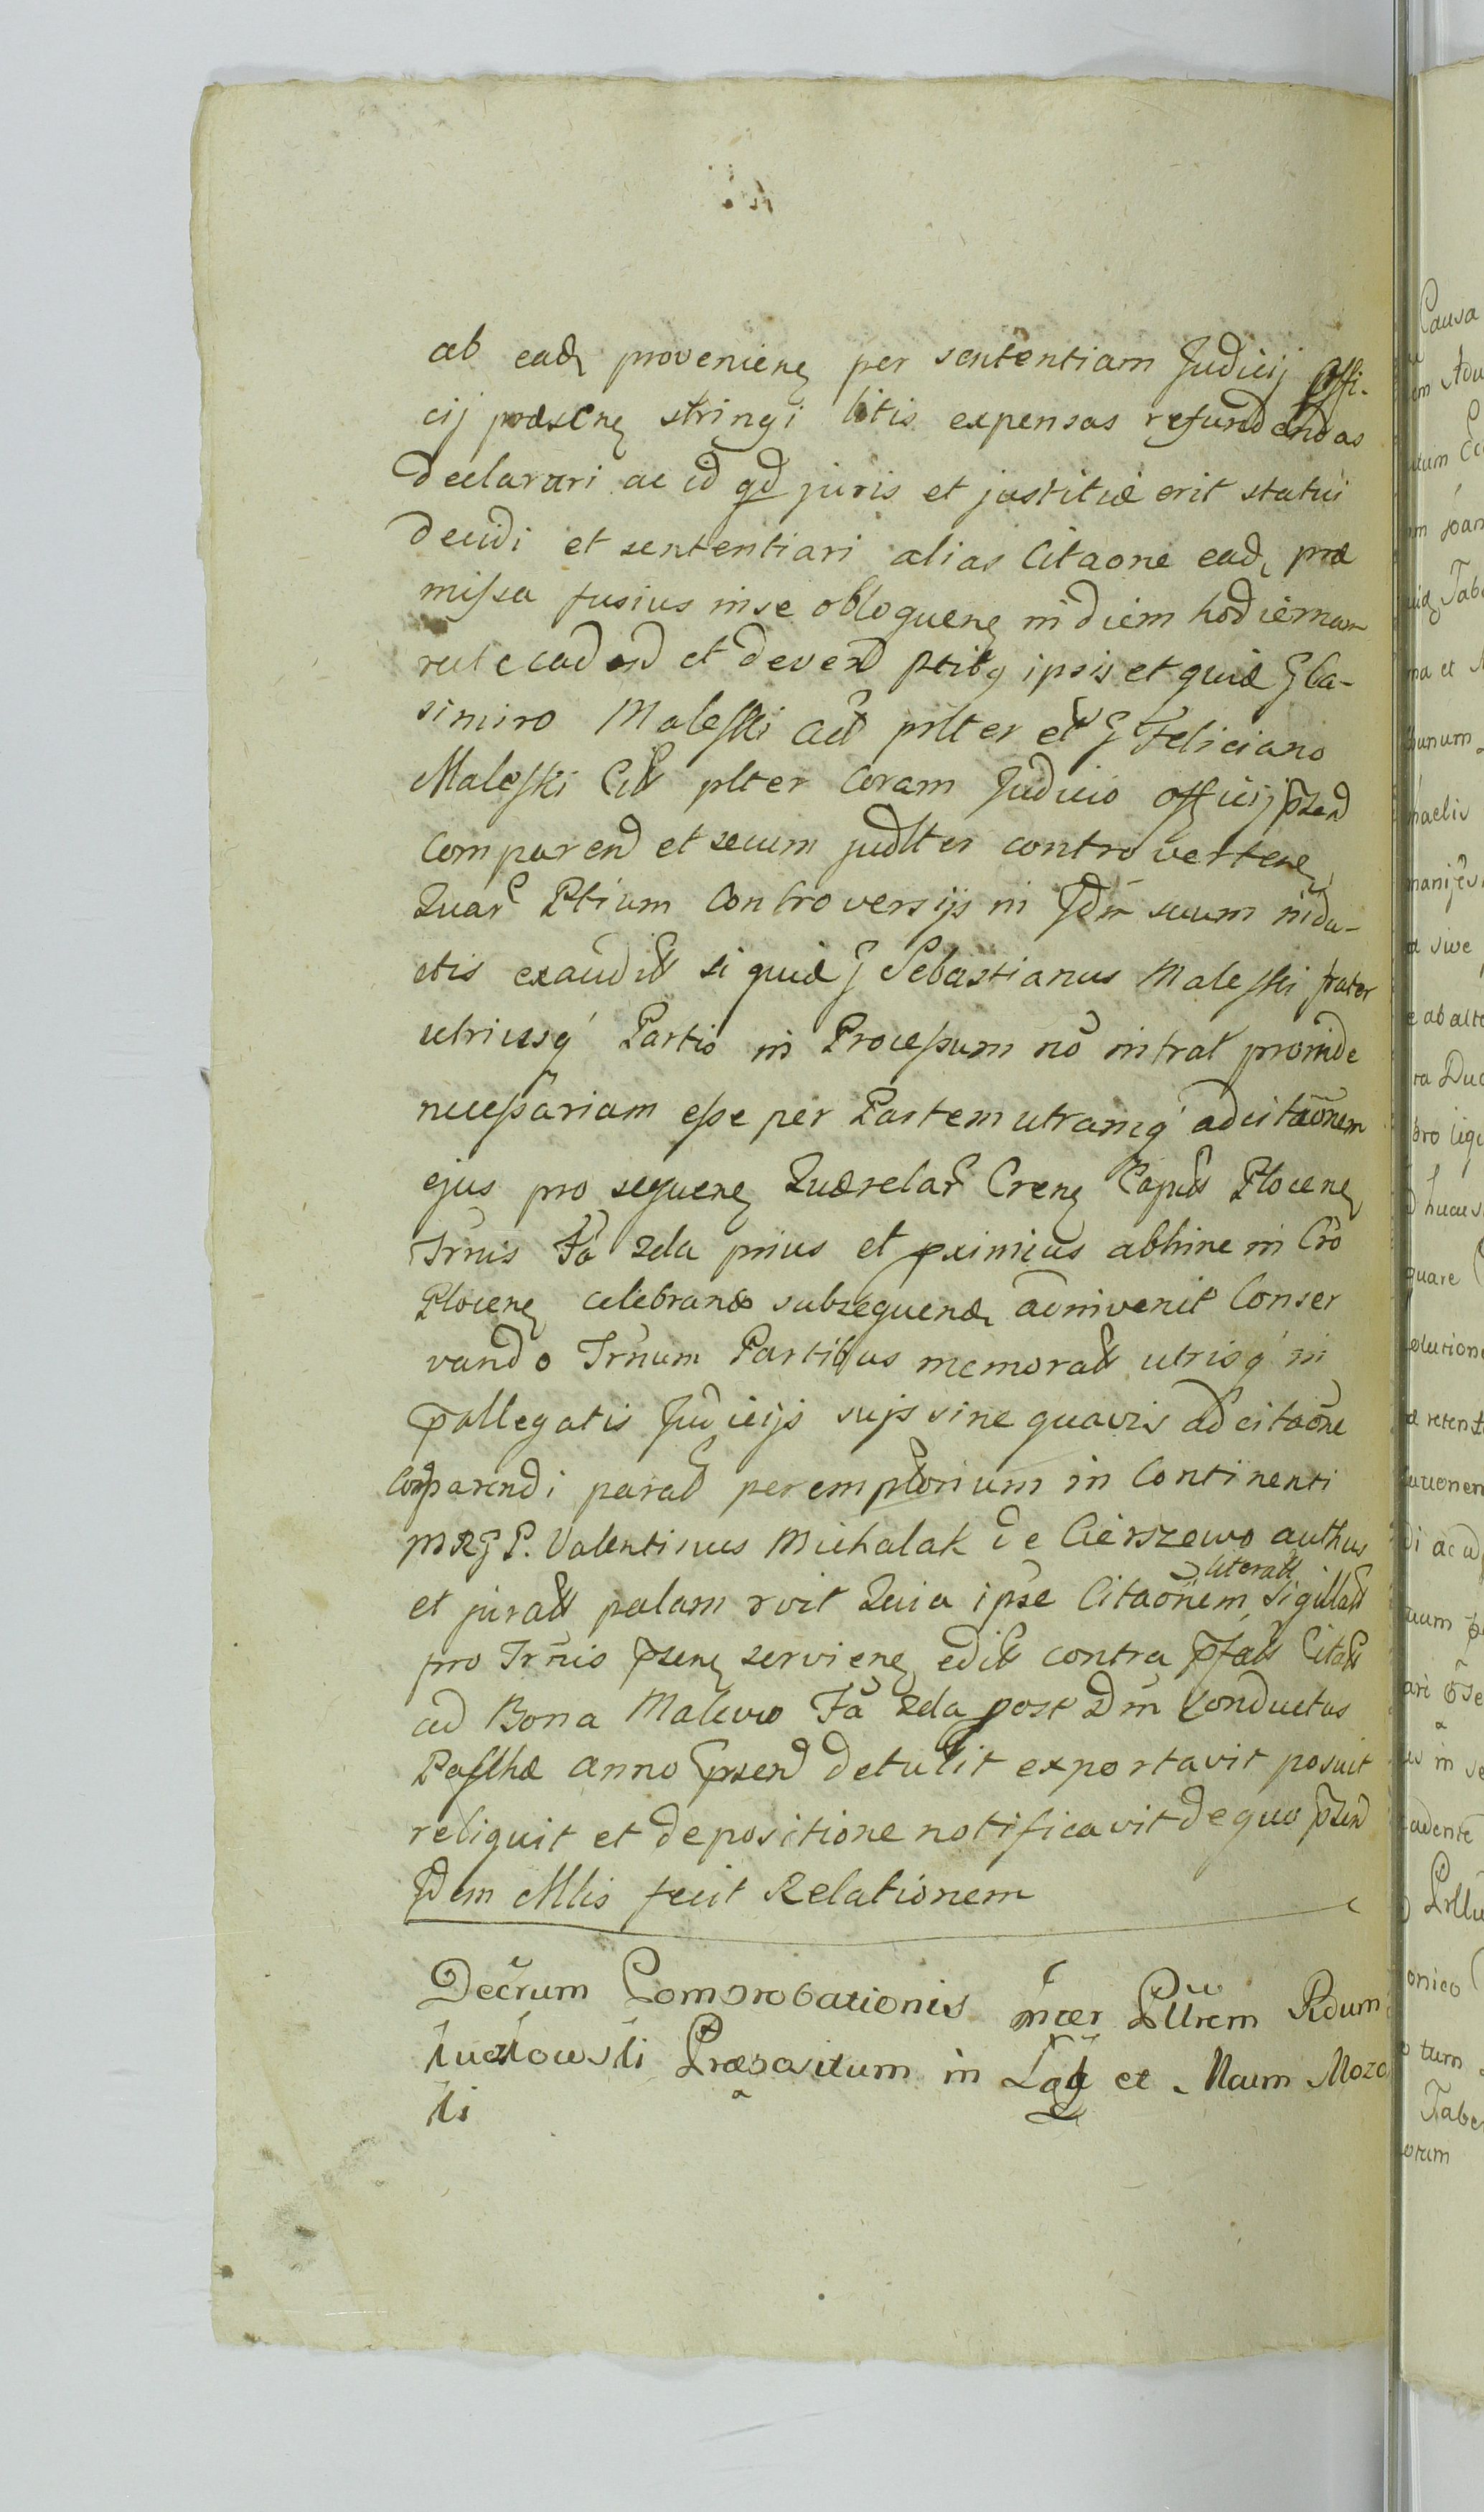 ab ead, provenienȩ per sententiam Judicij Offi-
cij præsenȩ stringi litis expensas refundendas
declarari ac id qd juris et justitiæ erit statui
decidi et sententiari alias Citaone ead, præ
missa fusius in se obloquenȩ in diem hodiernam
rite cadend et devend ptibq ipsis et quidē G Ca-
simiro Maleski Act prlter et G Feliciano
Maleski Cit plter Coram Judicio officij p̃send
Comparend et secum judlter controvertenȩ
Quar Ptium Controversijs in Jdm suum indu-
ctis exaudit si quidē G Sebastianus Maleski frater
utriusq́ Partis in Processum nō intrat proinde
necessariam esse per Partem utramq́ adcitāonem
ejus pro sequenȩ Quærelar Crenȩ Capit Plocenȩ
Trnis Fã 2da prius et pximius abhinc in Crō
Plocenȩ celebrand subsequend, adinvenit Conser
vando Trnum Partibus memorat utrisq́ in
p̃allegatis Judicijs sujs sine quavis adcitaōne
Comparendi parat peremptorium in Continenti
MRGP. Valentinus Michalak de Cierszewo authus
et jurat palam rvit Quia ipse Citaōnem literatt Sigillat
pro Trnis p̃senȩ servienȩ edit contra p̃fat Citat
ad Bona Malewo Fã 2da post Dm̃ Conductus
Paschæ anno p̃send detulit exportavit posuit
reliquit et depositione notificavit de quo p̃sen
Idem Mlis fecit Relationem
Decrum Comprobationis inter Pllrem Rdum
Præpositum in et Naum Mozo
ki